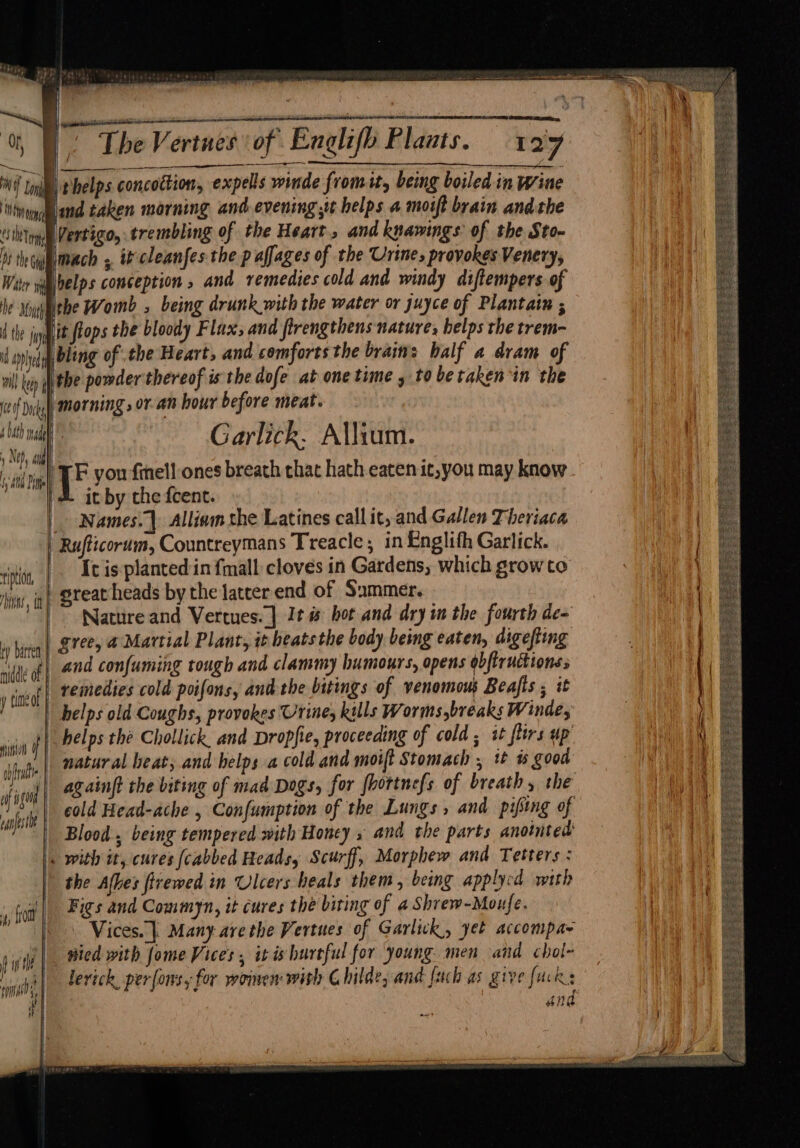 The Vertues of Engliſh Plants. 127
helps concoction, expells winde from it, being boiled in Wine
and taken morning and evening, it helps a moiſt brain and the
Vertigo, trembling of the Heart, and knawings of the Sto-
mach; it cleanſes the paſſages of the Urine, provokes Venery,
helps conception, and remedies cold and windy diſtempers of
the Womb; being drunk with the water or juyce of Plantain;
it ſtops the bloody Flux, and ſtrengthens nature, helps the trem-
bling of the Heart, and comforts the brain: half a dram of
the powder thereof is the doſe at one time, to be taken in the
morning, or an hour before meat.
Garlick. Allium.
IF you ſmell ones breath that hath eaten it, you may know
it by the ſcent.
Names.] Allium the Latines call it, and Gallen Theriaca
Ruſticorum, Countreymans Treacle; in Engliſh Garlick.
It is planted in ſmall cloves in Gardens, which grow to
great heads by the latter end of Summer.
Nature and Vertues.] It is hot and dry in the fourth de-
gree, a Martial Plant, it heats the body being eaten, digeſting
and conſuming tough and clammy humours, opens obſtructions,
remedies cold poiſons, and the bitings of venomous Beaſts; it
helps old Coughs, provokes Urine, kills Worms, breaks Winde,
helps the Chollick and Dropſie, proceeding of cold; it ſtirs up
natural heat, and helps a cold and moiſt Stomach; it is good
againſt the biting of mad Dogs, for ſhortneſs of breath, the
cold Head-ache, Conſumption of the Lungs, and piſſing of
Blood; being tempered with Honey; and the parts anointed
with it, cures ſcabbed Heads, Scurff, Morphew and Tetters:
the Aſhes ſtrewed in Ulcers heals them, being applyed with
Figs and Commyn, it cures the biting of a Shrew-Mouſe.
Vices.] Many are the Vertues of Garlick, yet accompa-
nied with ſome Vices, it is hurtful for young men and chol-
lerick perſons, for women with Childe, and ſuch as give ſuck:
and